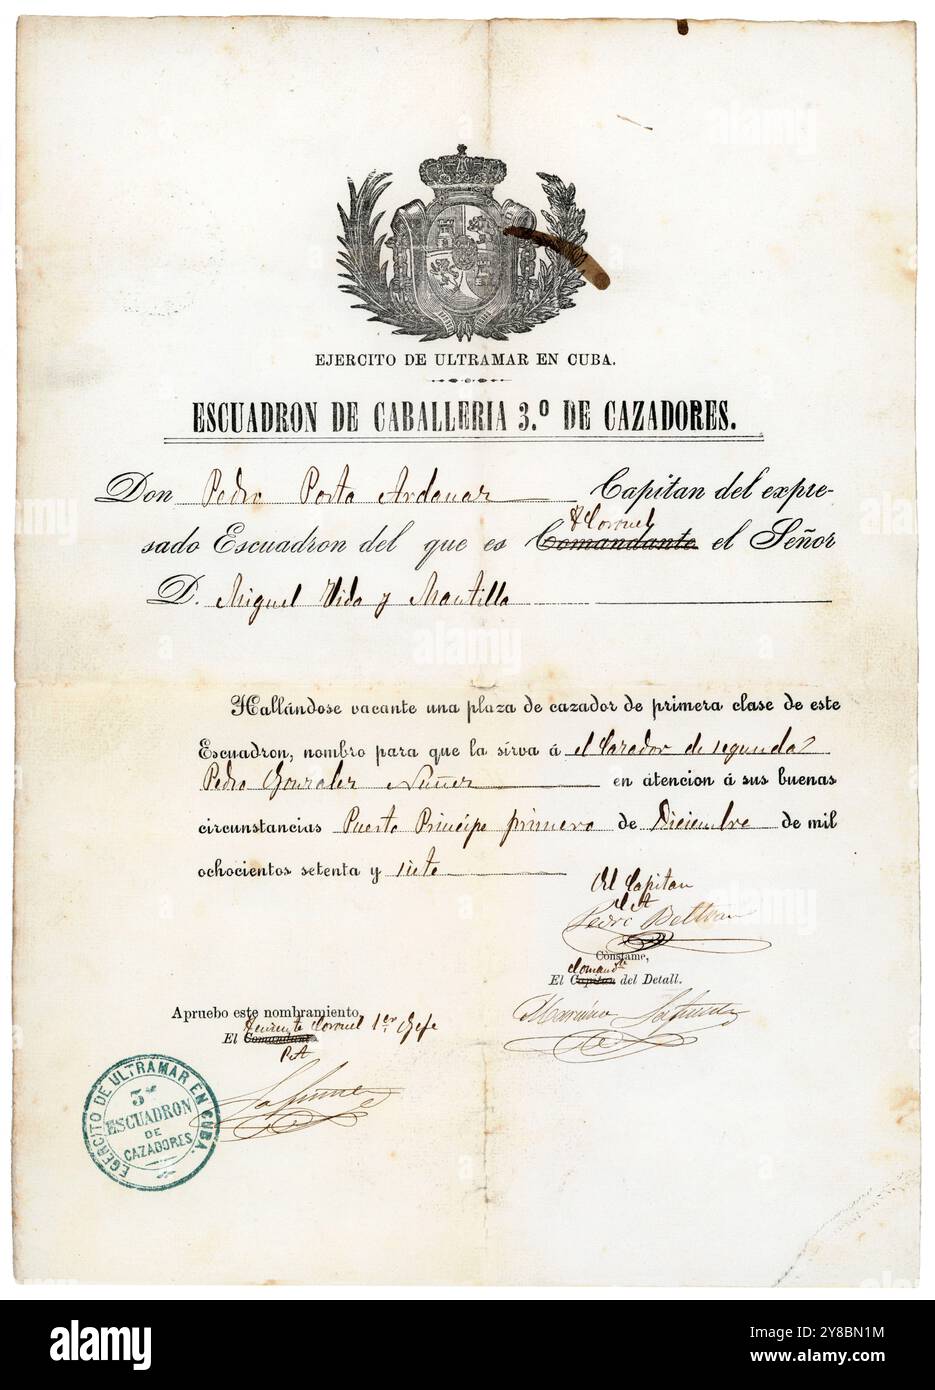 EJERCITO DE ULTRAMAR EN CUBA.
ESCUADRON DE CABALLERIA 3.º DE CAZADORES.
Don Pedro Porta Ardanaz Capitan del expre-
T. Coronel
sado Escuadron del que es Comandante el Señor
D. Miguel Vida y Mantilla
Hallándose vacante una plaza de cazador de primera clase de este
Escuadron, nombro para que la sirva á el Cazador de segunda
Pedro Gonzalez Nuñez en atencion á sus buenas
circunstancias Puerto Principe primero de Diciembre de mil
ochocientos setenta y siete
El Capitan
Pedro Beltran
Cónstame,
Comandte
El Capitan del Detall.
Mariano Lafuente
Apruebo este nombramiento,
Teniente Coronel 1er Gefe
El Comandante
P.A
Lafuente
EGERCITO DE ULTRAMAR EN CUBA.
3er
ESCUADRON
DE
CAZADORES
alamy
Image ID: 2Y8BN1M
www.alamy.com